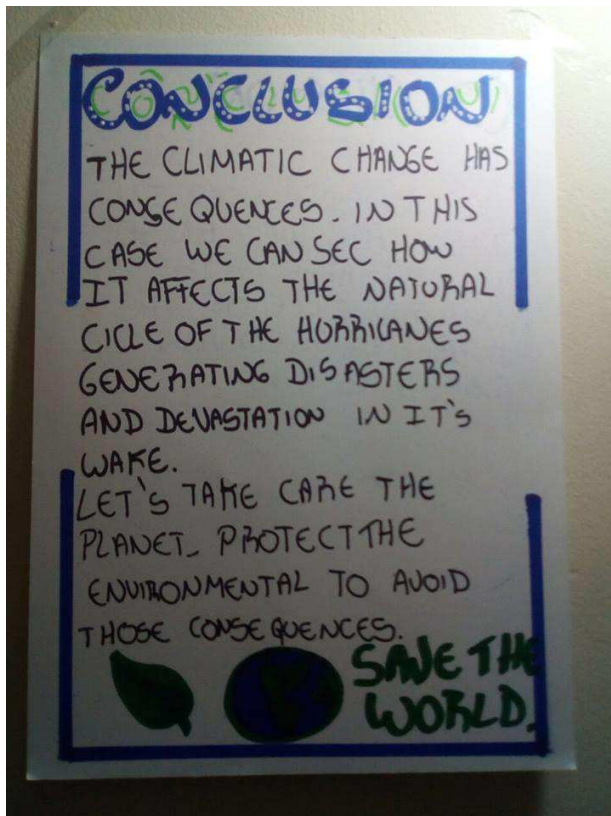 CONCLUSION
THE CLIMATIC CHANGE HAS
CONSEQUENCES. IN THIS
CASE WE CAN SEE HOW
IT AFFECTS THE NATURAL
CICLE OF THE HURRICANES
GENERATING DISASTERS
AND DEVASTATION IN IT'S
WAKE.
LET'S TAKE CARE THE
PLANET. PROTECT THE
ENVIRONMENTAL TO AVOID
THOSE CONSEQUENCES.
SAVE THE
WORLD.